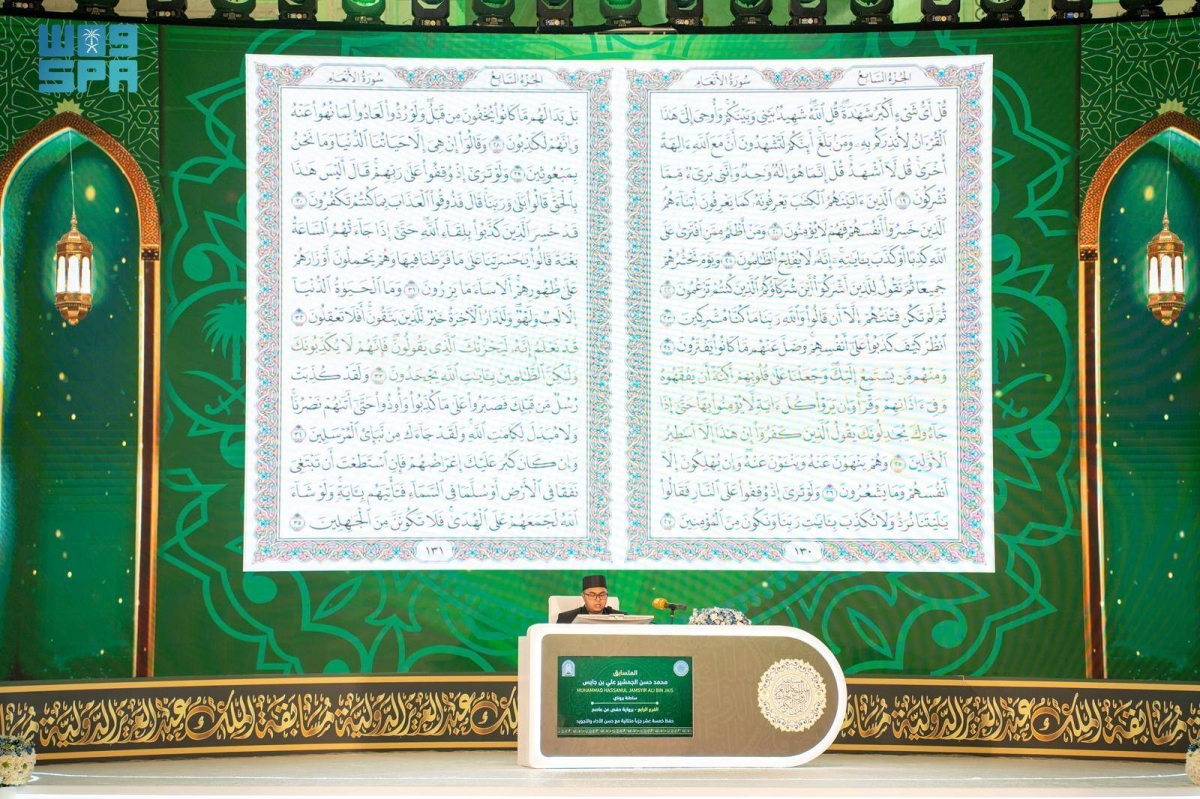 واس
SPA
الجزء السابع سورة الأنعام
قُلْ أَىُّ شَىْءٍ أَكْبَرُ شَهَٰدَةً قُلِ ٱللَّهُ شَهِيدٌۢ بَيْنِى وَبَيْنَكُمْ وَأُوحِىَ إِلَىَّ هَٰذَا
ٱلْقُرْءَانُ لِأُنذِرَكُم بِهِۦ وَمَنۢ بَلَغَ أَئِنَّكُمْ لَتَشْهَدُونَ أَنَّ مَعَ ٱللَّهِ ءَالِهَةً
أُخْرَىٰ قُل لَّآ أَشْهَدُ قُلْ إِنَّمَا هُوَ إِلَٰهٌ وَٰحِدٌ وَإِنَّنِى بَرِىٓءٌ مِّمَّا
تُشْرِكُونَ ١٩ ٱلَّذِينَ ءَاتَيْنَٰهُمُ ٱلْكِتَٰبَ يَعْرِفُونَهُۥ كَمَا يَعْرِفُونَ أَبْنَآءَهُمُ
ٱلَّذِينَ خَسِرُوٓا۟ أَنفُسَهُمْ فَهُمْ لَا يُؤْمِنُونَ ٢٠ وَمَنْ أَظْلَمُ مِمَّنِ ٱفْتَرَىٰ عَلَى
ٱللَّهِ كَذِبًا أَوْ كَذَّبَ بِـَٔايَٰتِهِۦٓ إِنَّهُۥ لَا يُفْلِحُ ٱلظَّٰلِمُونَ ٢١ وَيَوْمَ نَحْشُرُهُمْ
جَمِيعًا ثُمَّ نَقُولُ لِلَّذِينَ أَشْرَكُوٓا۟ أَيْنَ شُرَكَآؤُكُمُ ٱلَّذِينَ كُنتُمْ تَزْعُمُونَ ٢٢
ثُمَّ لَمْ تَكُن فِتْنَتُهُمْ إِلَّآ أَن قَالُوا۟ وَٱللَّهِ رَبِّنَا مَا كُنَّا مُشْرِكِينَ ٢٣
ٱنظُرْ كَيْفَ كَذَبُوا۟ عَلَىٰٓ أَنفُسِهِمْ وَضَلَّ عَنْهُم مَّا كَانُوا۟ يَفْتَرُونَ ٢٤
وَمِنْهُم مَّن يَسْتَمِعُ إِلَيْكَ وَجَعَلْنَا عَلَىٰ قُلُوبِهِمْ أَكِنَّةً أَن يَفْقَهُوهُ
وَفِىٓ ءَاذَانِهِمْ وَقْرًا وَإِن يَرَوْا۟ كُلَّ ءَايَةٍ لَّا يُؤْمِنُوا۟ بِهَا حَتَّىٰٓ إِذَا
جَآءُوكَ يُجَٰدِلُونَكَ يَقُولُ ٱلَّذِينَ كَفَرُوٓا۟ إِنْ هَٰذَآ إِلَّآ أَسَٰطِيرُ
ٱلْأَوَّلِينَ ٢٥ وَهُمْ يَنْهَوْنَ عَنْهُ وَيَنْـَٔوْنَ عَنْهُ وَإِن يُهْلِكُونَ إِلَّآ
أَنفُسَهُمْ وَمَا يَشْعُرُونَ ٢٦ وَلَوْ تَرَىٰٓ إِذْ وُقِفُوا۟ عَلَى ٱلنَّارِ فَقَالُوا۟
يَٰلَيْتَنَا نُرَدُّ وَلَا نُكَذِّبَ بِـَٔايَٰتِ رَبِّنَا وَنَكُونَ مِنَ ٱلْمُؤْمِنِينَ ٢٧
١٣٠
الجزء السابع سورة الأنعام
بَلْ بَدَا لَهُم مَّا كَانُوا۟ يُخْفُونَ مِن قَبْلُ وَلَوْ رُدُّوا۟ لَعَادُوا۟ لِمَا نُهُوا۟ عَنْهُ
وَإِنَّهُمْ لَكَٰذِبُونَ ٢٨ وَقَالُوٓا۟ إِنْ هِىَ إِلَّا حَيَاتُنَا ٱلدُّنْيَا وَمَا نَحْنُ
بِمَبْعُوثِينَ ٢٩ وَلَوْ تَرَىٰٓ إِذْ وُقِفُوا۟ عَلَىٰ رَبِّهِمْ قَالَ أَلَيْسَ هَٰذَا
بِٱلْحَقِّ قَالُوا۟ بَلَىٰ وَرَبِّنَا قَالَ فَذُوقُوا۟ ٱلْعَذَابَ بِمَا كُنتُمْ تَكْفُرُونَ ٣٠
قَدْ خَسِرَ ٱلَّذِينَ كَذَّبُوا۟ بِلِقَآءِ ٱللَّهِ حَتَّىٰٓ إِذَا جَآءَتْهُمُ ٱلسَّاعَةُ
بَغْتَةً قَالُوا۟ يَٰحَسْرَتَنَا عَلَىٰ مَا فَرَّطْنَا فِيهَا وَهُمْ يَحْمِلُونَ أَوْزَارَهُمْ
عَلَىٰ ظُهُورِهِمْ أَلَا سَآءَ مَا يَزِرُونَ ٣١ وَمَا ٱلْحَيَوٰةُ ٱلدُّنْيَآ
إِلَّا لَعِبٌ وَلَهْوٌ وَلَلدَّارُ ٱلْءَاخِرَةُ خَيْرٌ لِّلَّذِينَ يَتَّقُونَ أَفَلَا تَعْقِلُونَ ٣٢
قَدْ نَعْلَمُ إِنَّهُۥ لَيَحْزُنُكَ ٱلَّذِى يَقُولُونَ فَإِنَّهُمْ لَا يُكَذِّبُونَكَ
وَلَٰكِنَّ ٱلظَّٰلِمِينَ بِـَٔايَٰتِ ٱللَّهِ يَجْحَدُونَ ٣٣ وَلَقَدْ كُذِّبَتْ
رُسُلٌ مِّن قَبْلِكَ فَصَبَرُوا۟ عَلَىٰ مَا كُذِّبُوا۟ وَأُوذُوا۟ حَتَّىٰٓ أَتَىٰهُمْ نَصْرُنَا
وَلَا مُبَدِّلَ لِكَلِمَٰتِ ٱللَّهِ وَلَقَدْ جَآءَكَ مِن نَّبَإِى۟ ٱلْمُرْسَلِينَ ٣٤
وَإِن كَانَ كَبُرَ عَلَيْكَ إِعْرَاضُهُمْ فَإِنِ ٱسْتَطَعْتَ أَن تَبْتَغِىَ
نَفَقًا فِى ٱلْأَرْضِ أَوْ سُلَّمًا فِى ٱلسَّمَآءِ فَتَأْتِيَهُم بِـَٔايَةٍ وَلَوْ شَآءَ
ٱللَّهُ لَجَمَعَهُمْ عَلَى ٱلْهُدَىٰ فَلَا تَكُونَنَّ مِنَ ٱلْجَٰهِلِينَ ٣٥
١٣١
المتسابق
محمد حسن الجمشير علي بن جايس
MUHAMMAD HASSANUL JAMSYIR ALI BIN JAIS
سلطنة بروناي
الفرع الرابع - برواية حفص عن عاصم
حفظ خمسة عشر جزءاً متتالية مع حسن الأداء والتجويد
مسابقة الملك عبدالعزيز الدولية
مسابقة الملك عبدالعزيز الدولية